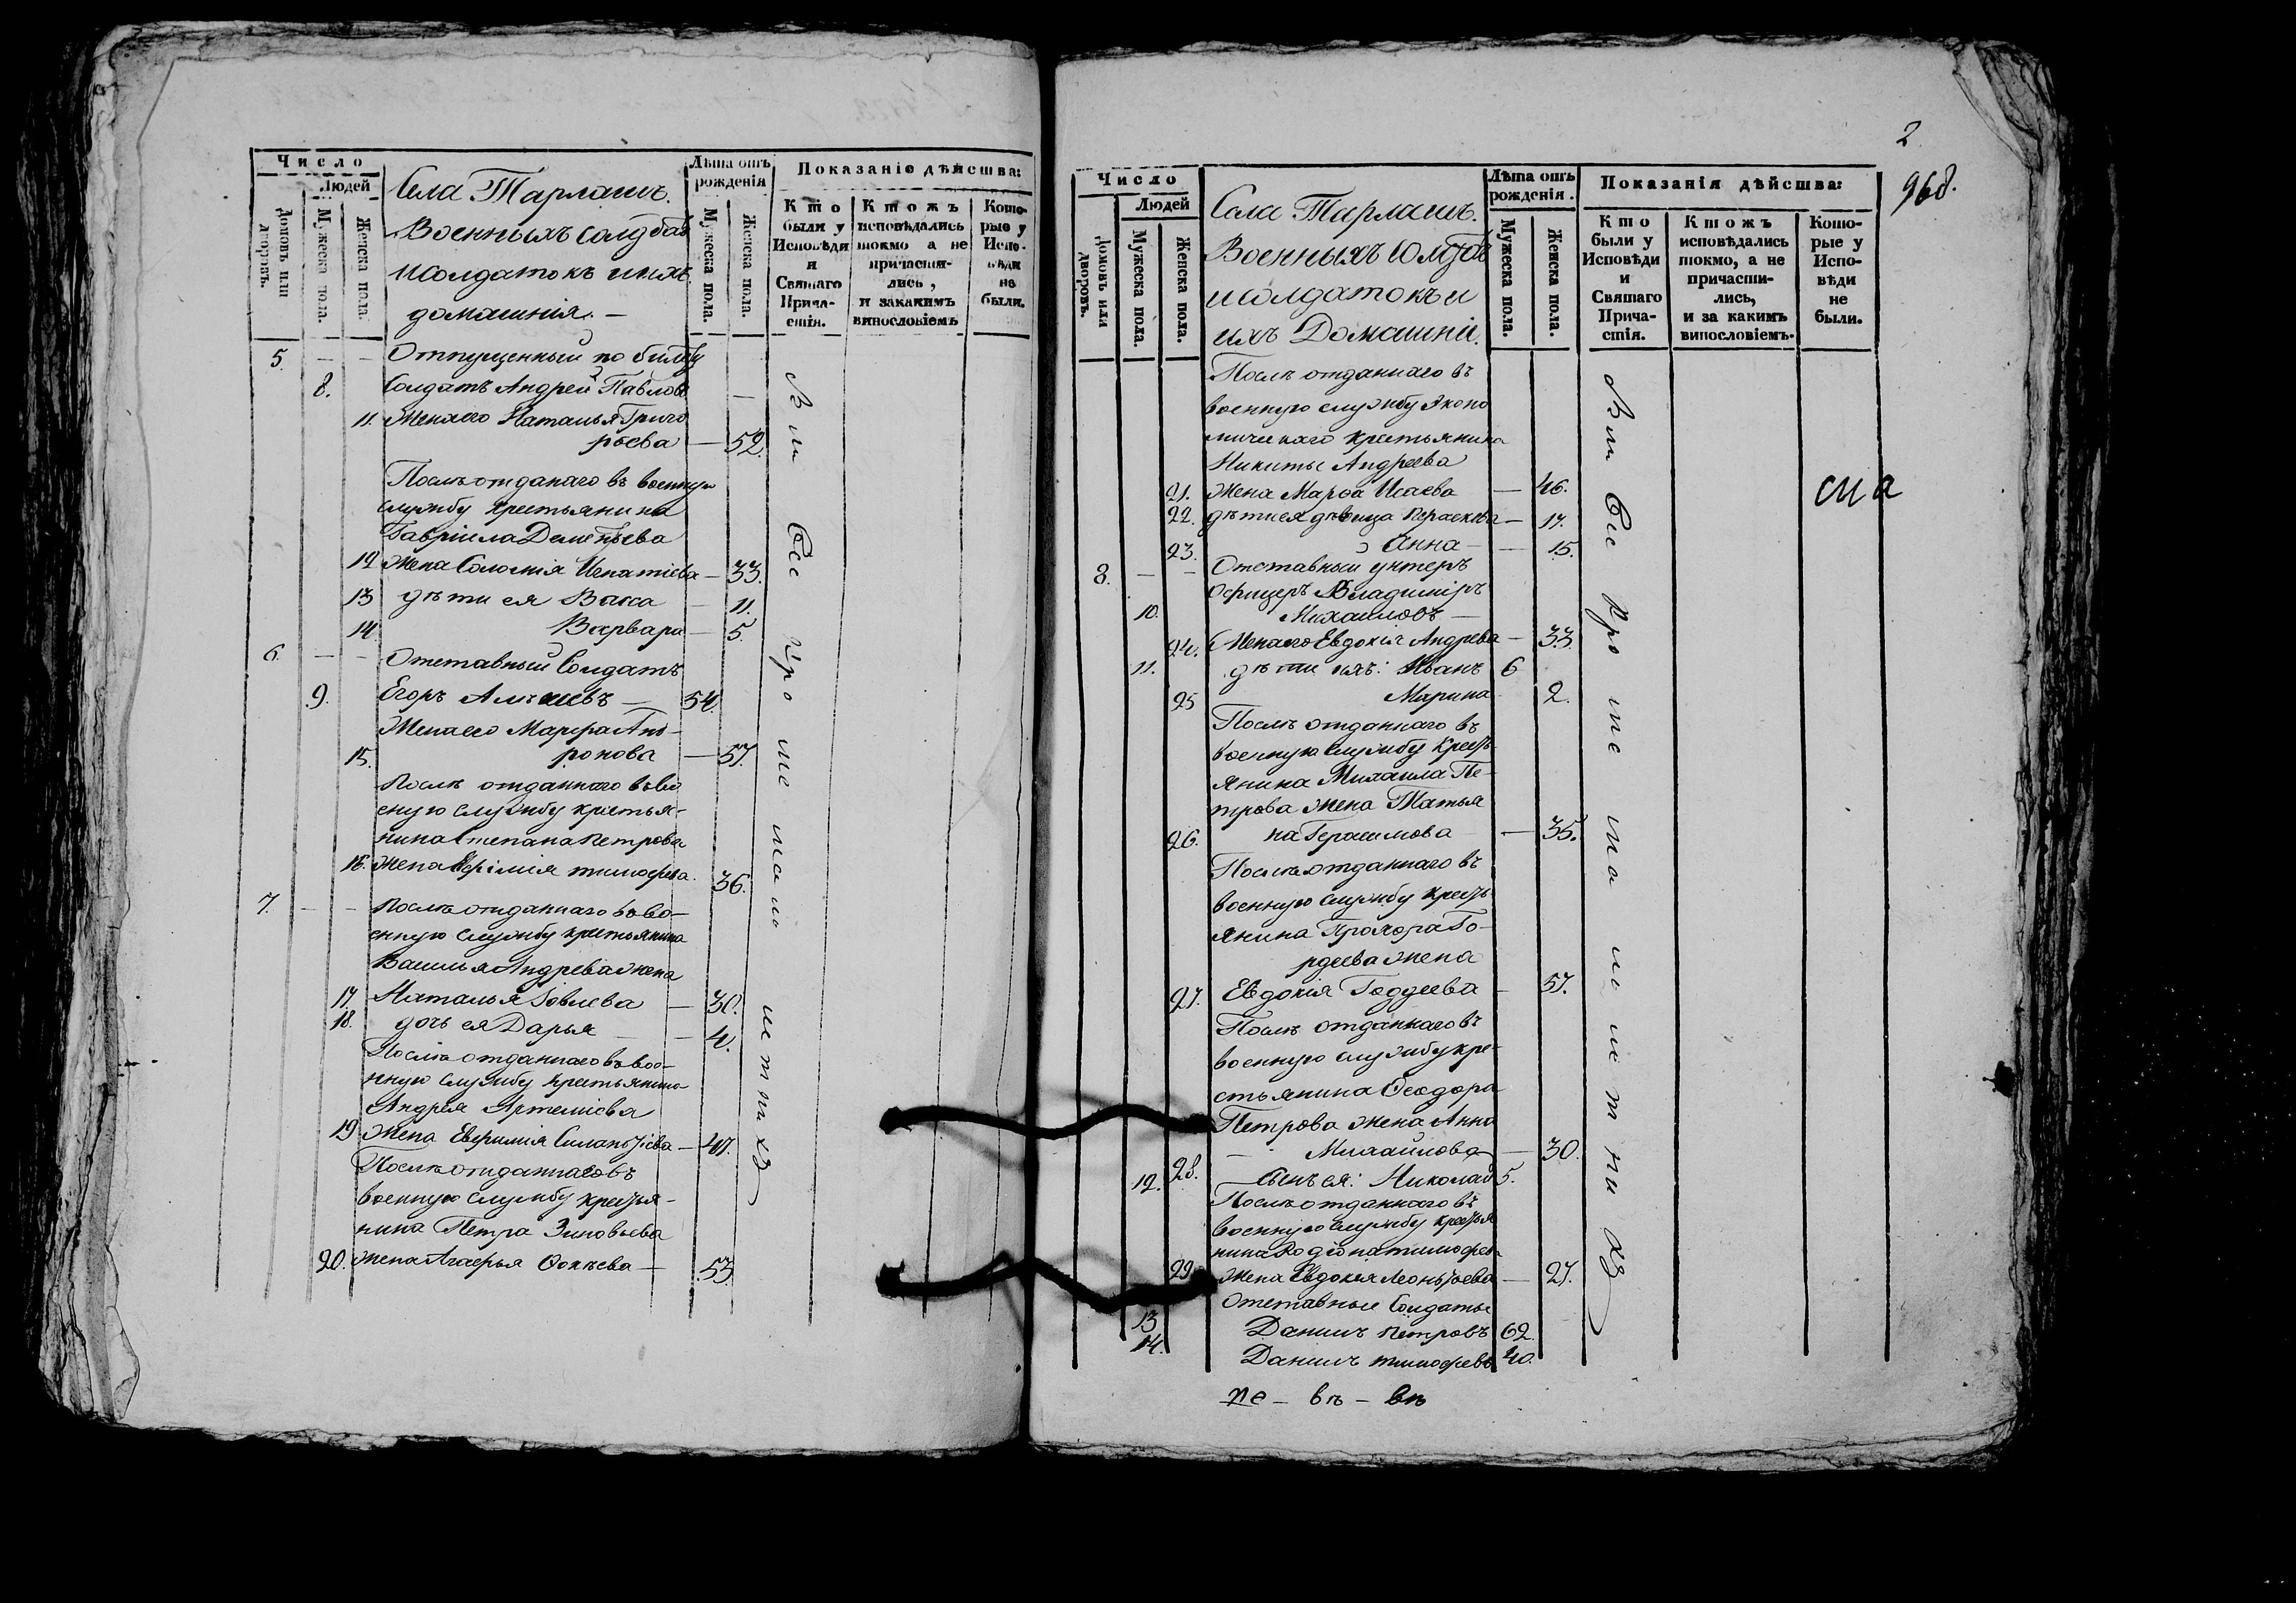 Число
Людей
Домовъ или дворовъ.
Мужеска пола.
Женска пола.
Села Тарлашъ.
Военныхъ солдатъ
и солдатокъ и ихъ
домашнія. —
Лѣта отъ рожденія
Мужеска пола.
Женска пола.
Показаніе дѣйсшва:
Кто были у Исповѣди и Святаго Прича-стія.
Ктожъ исповѣдались токмо а не причасти-лись, и закакимъ винословіемъ
Кото-рые у Испо-вѣди не были.
5. — — Отпущенный по билету
8. Солдатъ Андрей Павловъ —
11. Жена его Наталья Григо
рьева — 52.
Послѣ отданаго въ военную
службу крестьянина
Гавріила Дементьева
12 Жена Соломія Игнатіева — 33.
13 дѣти ея Васса — 11.
14. Варвара — 5.
6. — — Отставный Солдатъ
9. Егоръ — 54.
Жена его Марфа
15. ронова — 57.
Послѣ отданнаго въ во
енную службу крестья-
нина Степана Петрова
16. Жена Тимофева. 36.
7. — — Послѣ отданнаго въ во-
енную службу крестьянина
Василья Андрева жена
17. Наталья Іовлева — 30.
18. дочь ея Дарья — 4.
Послѣ отданнаго въ вое-
нную службу крестьянина
Андрея Артеміева
19 Жена Евфимія Силантіева — 47.
Послѣ отданнаго въ
военную службу крестья-
нина Петра Зиновьева
20. Жена Агафья Фокѣева — 53.
Вси Все
2
968.
Число
Людей
Домовъ или дворовъ.
Мужеска пола.
Женска пола.
Села Тарлашъ.
Военныхъ Солдатъ
и солдатокъ и
ихъ Домашніи.
Лѣта отъ рожденія.
Мужеска пола.
Женска пола.
Показанія дѣйсшва:
Кто были у Исповѣди и Святаго Прича-стія.
Ктожъ исповѣдались токмо, а не причасти-лись, и за какимъ винословіемъ.
Кото-рые у Испо-вѣди не были.
Послѣ отданнаго въ
военную службу эконо
мическаго крестьянина
Никиты Андреева
21. Жена Марѳа Исаева — 46.
22. дѣти ея дѣвица Параскева — 17.
23. Анна — — 15.
8. — — Отставный унтеръ
Офицеръ Владиміръ
10. Михаиловъ —
24. Жена его Евдокія Андрева — 33.
11. дѣти ихъ: Иванъ 6
25 Марина 2.
Послѣ отданнаго въ
военную службу кресть-
янина Михаила Пе-
трова жена Татья
26. на Герасимова — 35.
Послѣ отданнаго въ
военную службу кресть
янина Прохора Го-
рдеева жена
27. Евдокія — 57.
Послѣ отданнаго въ
военную службу кре-
стьянина Ѳеодора
Петрова жена Анна
28. — Михаилова — 30.
12. Сынъ ея: Николай 5.
Послѣ отданнаго въ
военную службу крестья
нина Родіона Тимофева
29. Жена Евдокія Леонтьева — 27.
Отставные Солдаты
13 Данилъ Петровъ 62.
14. Данилъ Тимофевъ 40.